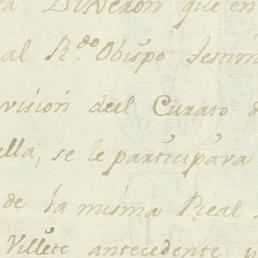 Dixeron que en
al R.do Obispo testim
vision del Curato d
ella, se le participara
de la misma Real
Villete antecedente